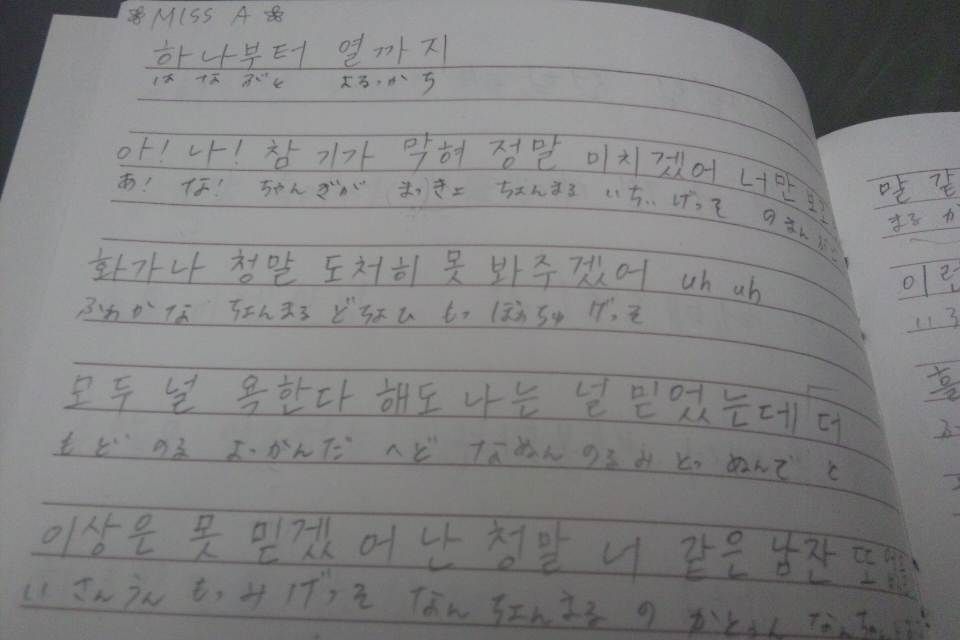 ❀ MISS A ❀
하나부터 열까지
はなぶと よるっかち
아! 나! 참 기가 막혀 정말 미치겠어 너만
あ! な! ちゃん ぎが まっきょ ちょんまる いちい げっそ のまん
화가나 청말 도처히 못 봐주겠어 uh uh
ふぁかな ちょんまる どちょひ もっ ぼぁちゅ げっそ
모두 널 욕한다 해도 나는 널 믿었는데 더
もど のる よっかんだ へど なぬん のるみとっ ぬんで と
이상은 못 믿겠어 난 청말 너 같은 남잔
いさんうん もっみげっそ なん ちょんまる の
말 같
まる が
이런
いろ
흘